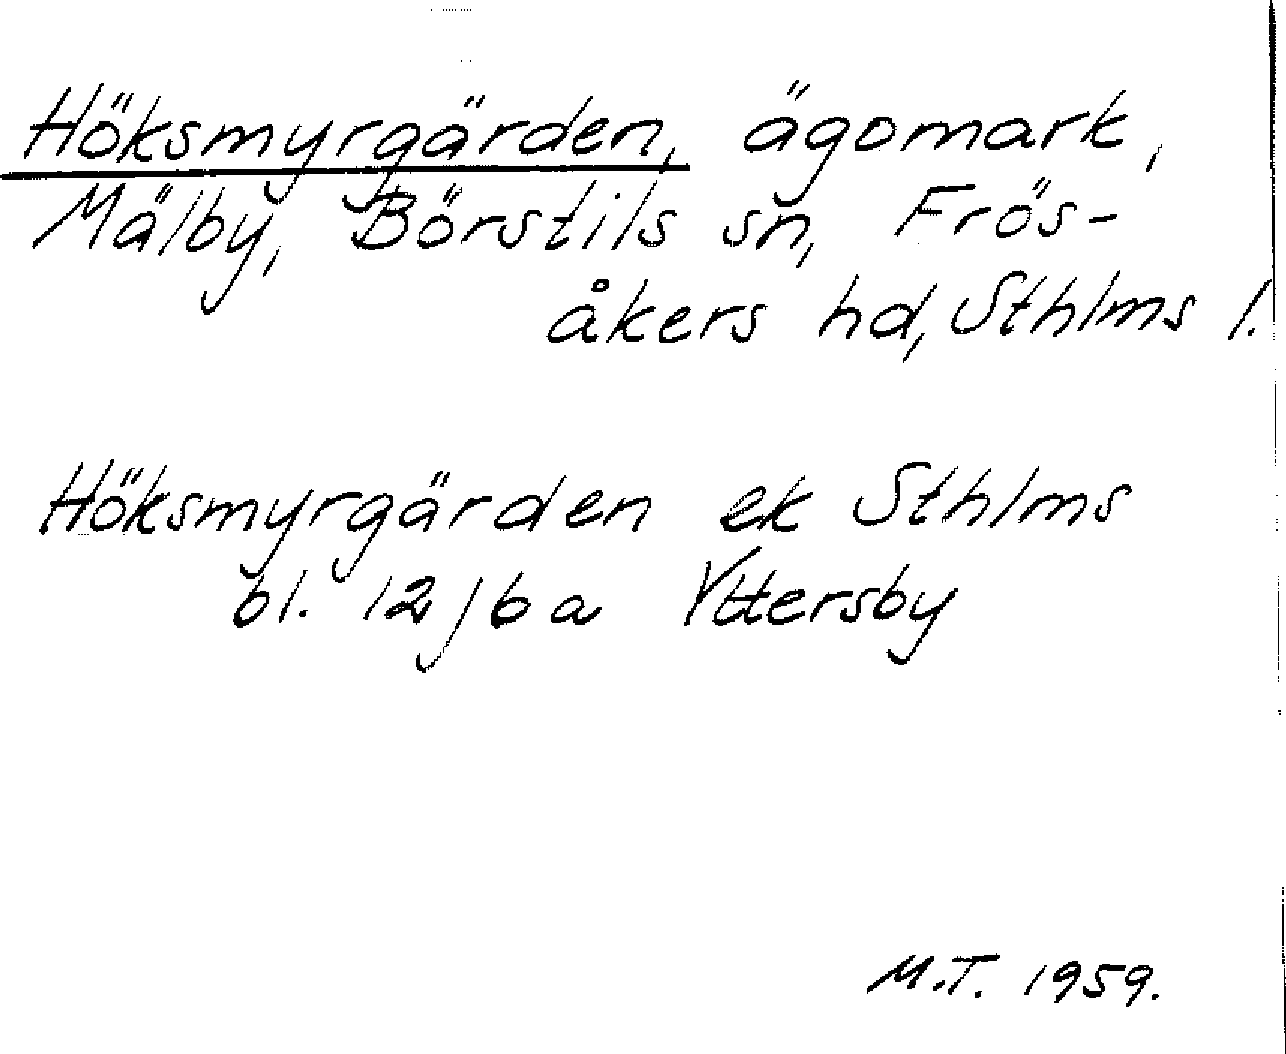 Höksmyrgärden, ägomark,
Mälby, Börstils sn, Frös-
åkers hd, Sthlms l.
Höksmyrgärden ek Sthlms
bl. 12 j 6 a Yttersby
M.T. 1959.